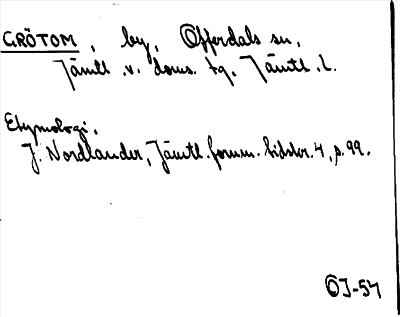 GRÖTOM, by, Offerdals sn,
Jämtl. v. doms. tg, Jämtl. l.
Etymologi,
J. Nordlander, Jämtl. fornm. tidskr. 4, s. 99.
OJ-54